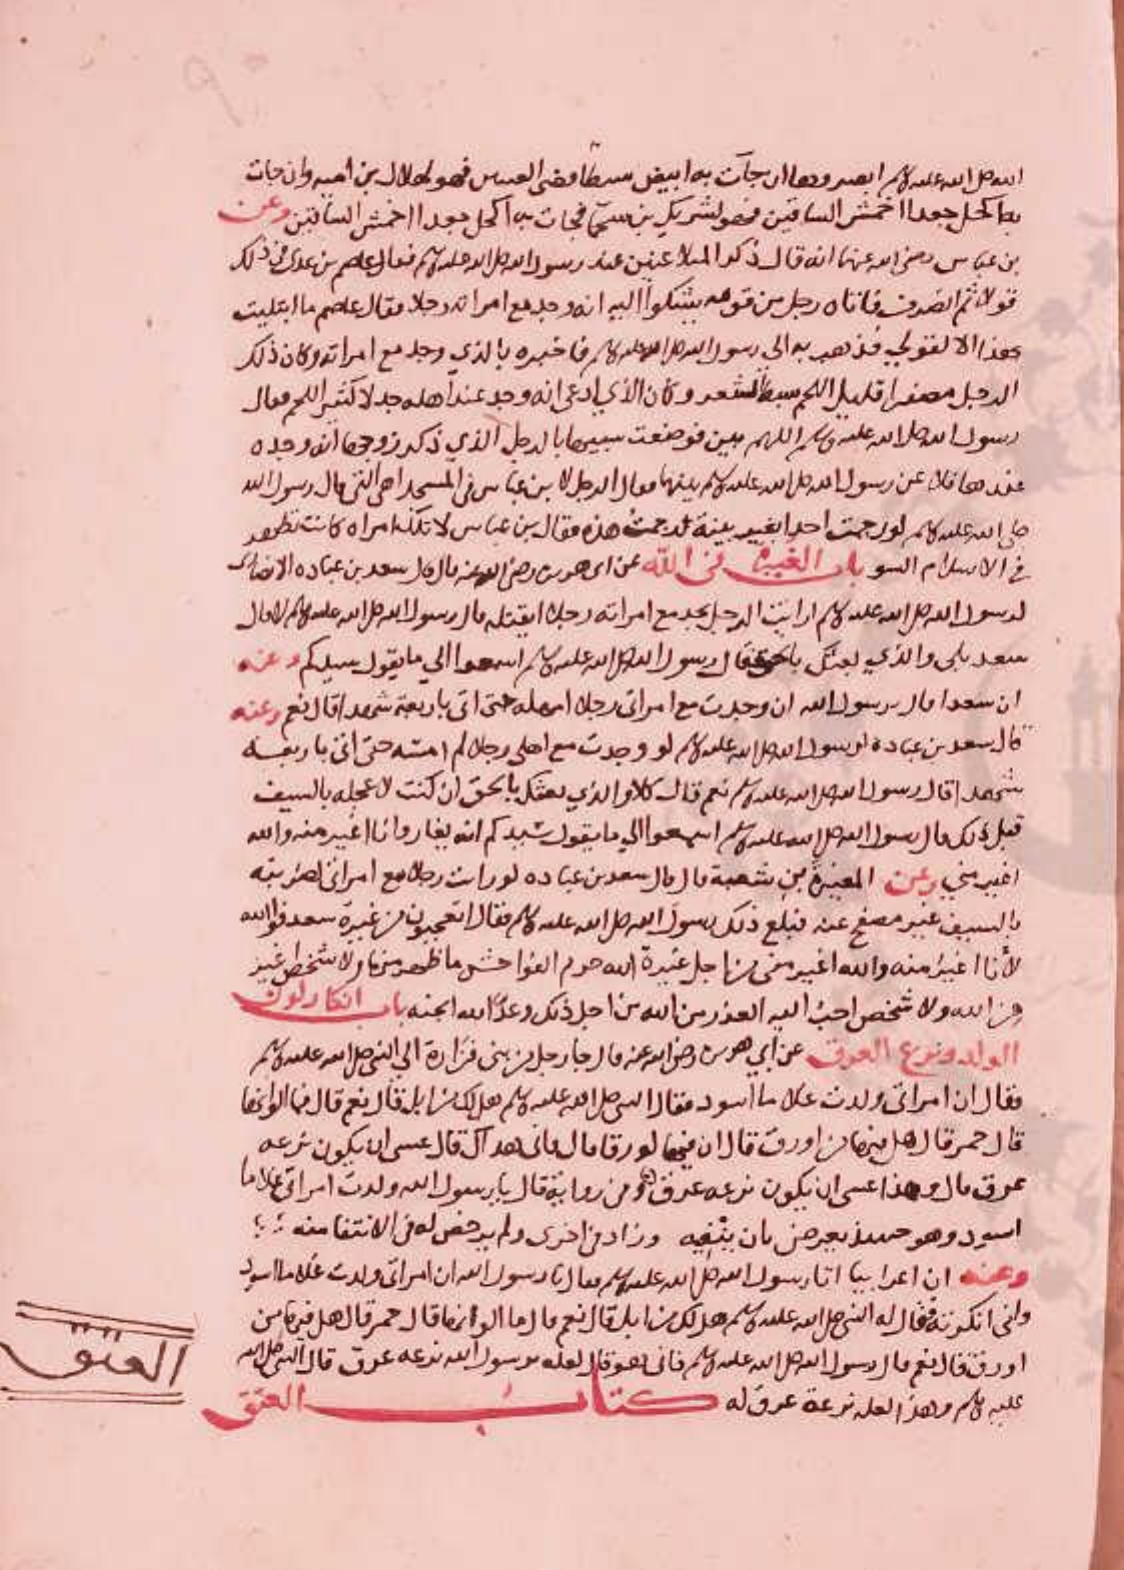 الله صلى الله عليه وسلم ابصروها فان جآت به ابيض سبطا قضى العينين فهو لهلال بن اميه وان جات
به اكحل جعدا احمش الساقين فهو لشريك بن سحما فجات به اكحل جعدا احمش الساقين وعن
بن عباس رضى الله عنهما انه قال ذكر المتلاعنين عند رسول الله صلى الله عليه وسلم فقال عاصم بن عدى فى ذلك
قولا ثم انصرف فاتاه رجل من قومه يشكوا اليه انه وجد مع امراته رجلا فقال عاصم ما ابتليت
بهذا الا لقولي فذهب به الى رسول الله صلى الله عليه وسلم فاخبره بالذي وجد مع امراته وكان ذلك
الرجل مصفرا قليل اللحم سبط الشعر وكان الذي ادعى انه وجد عند اهله جدلا كثير اللحم فقال
رسول الله صلى الله عليه وسلم اللهم بين فوضعت شبيها بالرجل الذي ذكر زوجها انه وجده
عندها فلاعن رسول الله صلى الله عليه وسلم بينهما فقال الرجل لابن عباس فى المسجد اهى التى قال رسول الله
صلى الله عليه وسلم لو رجمت احدا بغير بينة لرجمت هذه فقال بن عباس لا تلك امراه كانت تظهر
في الاسلام السو باب الغيرة فى الله عن ابى هريره رضى الله عنه قال قال سعد بن عباده الانصارى
لرسول الله صلى الله عليه وسلم ارايت الرجل يجد مع امراته رجلا ايقتله قال رسول الله صلى الله عليه وسلم لا قال
سعد بلى والذي بعثك بالحق فقال رسول الله صلى الله عليه وسلم اسمعوا الي ما يقول سيدكم وعنه
ان سعدا قال يرسول الله ان وجدت مع امراتى رجلا امهله حتى اتى باربعة شهدا قال نعم وعنه
قال سعد بن عباده لرسول الله صلى الله عليه وسلم لو وجدت مع اهلى رجلا لم امسه حتى اتى باربعه
شهدا قال رسول الله صلى الله عليه وسلم نعم قال كلا والذي بعثك بالحق ان كنت لاعجله بالسيف
قبل ذلك قال رسول الله صلى الله عليه وسلم اسمعوا الي ما يقول سيدكم انه يغار وانا اغير منه والله
اغير مني وعن المغيرة بن شعبة قال قال سعد بن عباده لو رايت رجلا مع امراتى لضربته
بالسيف غير مصفح عنه فبلغ ذلك رسول الله صلى الله عليه وسلم فقال اتعجبون من غيرة سعد فوالله
لأنا اغير منه والله اغير منى من اجل غيرة الله حرم الفواحش ما ظهر منها ولا شخص اغير
من الله ولا شخص احب اليه العذر من الله من اجل ذلك وعد الله الجنه باب انكار لون
الولد ونزع العرق عن أبي هريره رضى الله عنه قال جا رجل من بنى فزارة الي النبى صلى الله عليه وسلم
فقال ان امراتى ولدت غلاما أسود فقال النبى صلى الله عليه وسلم هل لك من ابل قال نعم قال فما الوانها
قال حمر قال هل فيها من اورق قال ان فيها لورقا قال فانى هو ذاك قال عسى ان يكون نزعه
عرق قال وهذا عسى ان يكون نزعه عرق وفى رواية قال يا رسول الله ولدت امراتى غلاما
اسود وهو حينيذ يعرض بان ينفيه وزاد فى اخرى ولم يرخص له فى الانتفا منه
وعنه ان اعرابيا اتا رسول الله صلى الله عليه وسلم فقال يا رسول الله ان امراتى ولدت غلاما اسود
وانى انكرته فقال له النبى صلى الله عليه وسلم هل لك من ابل قال نعم قال ما الوانها قال حمر قال هل فيها من
اورق قال نعم قال رسول الله صلى الله عليه وسلم فانى هو قال لعله يرسول الله نزعه عرق قال النبى صلى الله
عليه وسلم وهذا لعله نزعة عرق له كتاب العتق
العتق